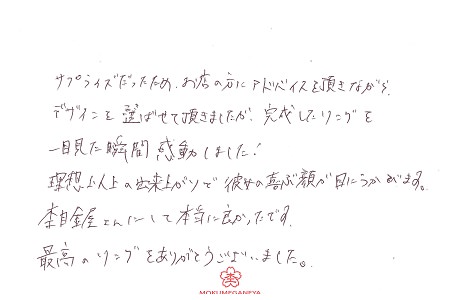 サプライズだったため、お店の方にアドバイスを頂きながら、
デザインを選ばせて頂きましたが、完成したリングを
一目見た瞬間感動しました!
理想以上の出来上がりで彼女の喜ぶ顔が目にうかびます。
杢目金屋さんにして本当に良かったです。
最高のリングをありがとうございました。
MOKUMEGANEYA